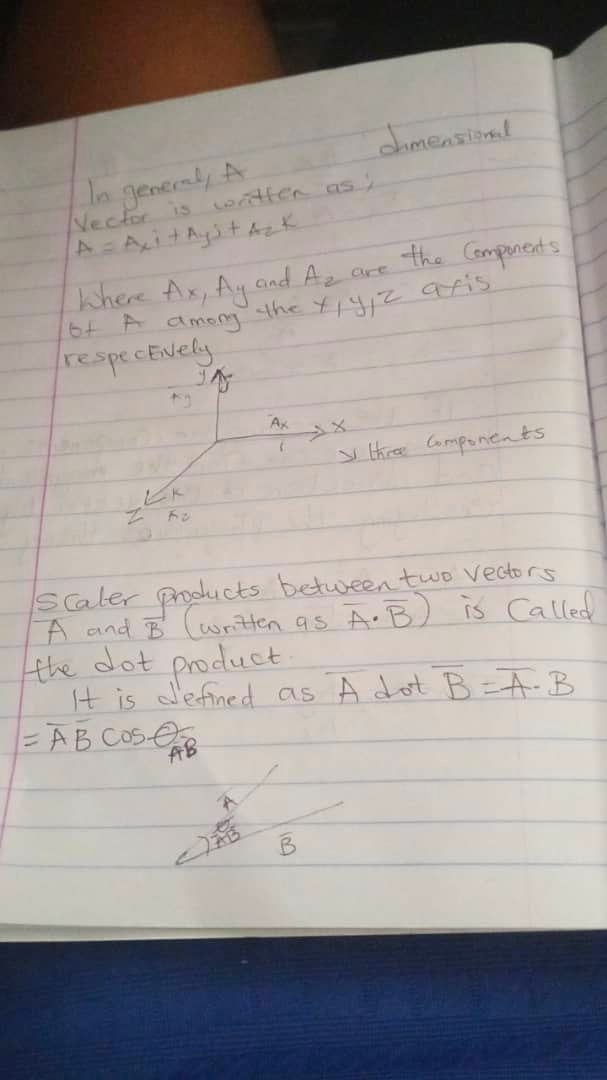 In general, A dimensional
Vector is written as;
A = Axi + Ayj + AzK
Where Ax, Ay and Az are the Components
of A among the x, y, z axis
respectively
y
Ay
Ax
x
i
three Components
K
Z
Az
Scaler products between two vectors
A̅ and B̅ (written as A̅·B̅) is Called
the dot product.
It is defined as A̅ dot B̅ = A̅·B
= A̅ B̅ Cos θAB
A̅
θ
AB
B̅